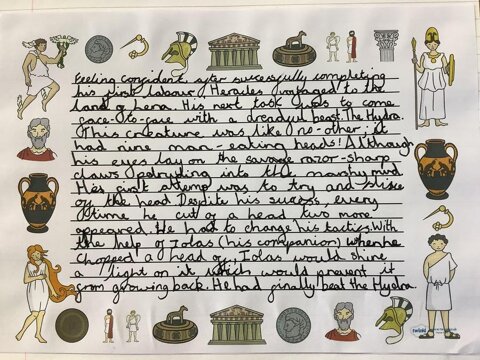 Feeling confident, after successfully completing
his first labour Hercules voyaged to the
land of Lerna. His next task was to come
face-to-face with a dreadful beast: The Hydra.
This creature was like no-other; it
had nine man-eating heads! Although
his eyes lay on the savage razor-sharp
claws protruding into the marshy mud.
His first attemp was to try and slice
off the head. Despite his success, every
time he cut of a head, two more
appeared. He had to change his tactics. With
the help of Iolas (his companion) when he
chopped a head of, Iolas would shine
a light on it which would prevent it
from growing back. He had finally beat the Hydra.
twinkl